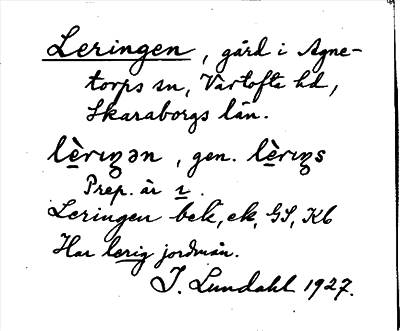 Leringen, gård i Agne-
torps sn, Vartofta hd,
Skaraborgs län.
lè̱rɪŋən, gen. lè̱rɪŋs
Prep. är ɪ.
Leringen bek, ek, GS, Kb
Har lerig jordmån.
I. Lundahl 1927.